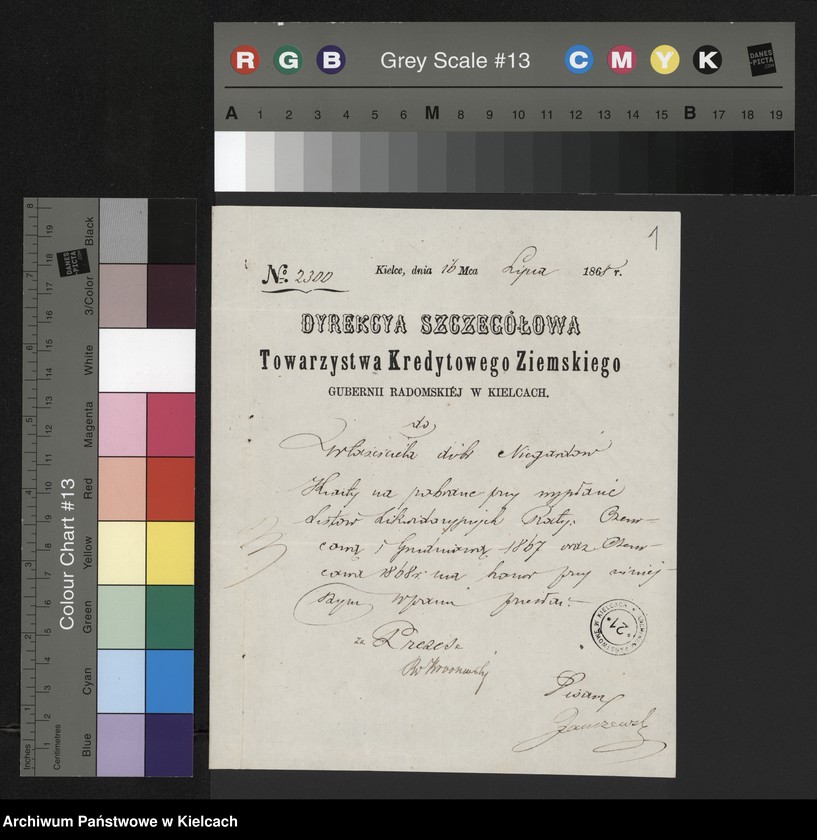 R G B Grey Scale #13 C M Y K DANES-PICTA.COM
A 1 2 3 4 5 6 M 8 9 10 11 12 13 14 15 B 17 18 19
1
№ 2300 Kielce, dnia 16 Mca Lipca 1868 r.
DYREKCYA SZCZEGÓŁOWA
Towarzystwa Kredytowego Ziemskiego
GUBERNII RADOMSKIÉJ W KIELCACH.
do
Właściciela dóbr Niegardów
Kwity na pobrane przy wypłacie
listów Likwidacyjnych Raty: Czerw-
cową i Grudniową 1867 oraz Czerw-
cową 1868 r. ma honor przy niniej-
szym Wpanu przesłać.
za Prezesa
Pisarz
ARCHIWUM PAŃSTWOWE W KIELCACH
*21*
Colour Chart #13
Blue Cyan Green Yellow Red Magenta White 3/Color Black
DANES-PICTA.COM
Inches 1 2 3 4 5 6 7 8
Centimetres 1 2 3 4 5 6 7 8 9 10 11 12 13 14 15 16 17 18 19
Archiwum Państwowe w Kielcach